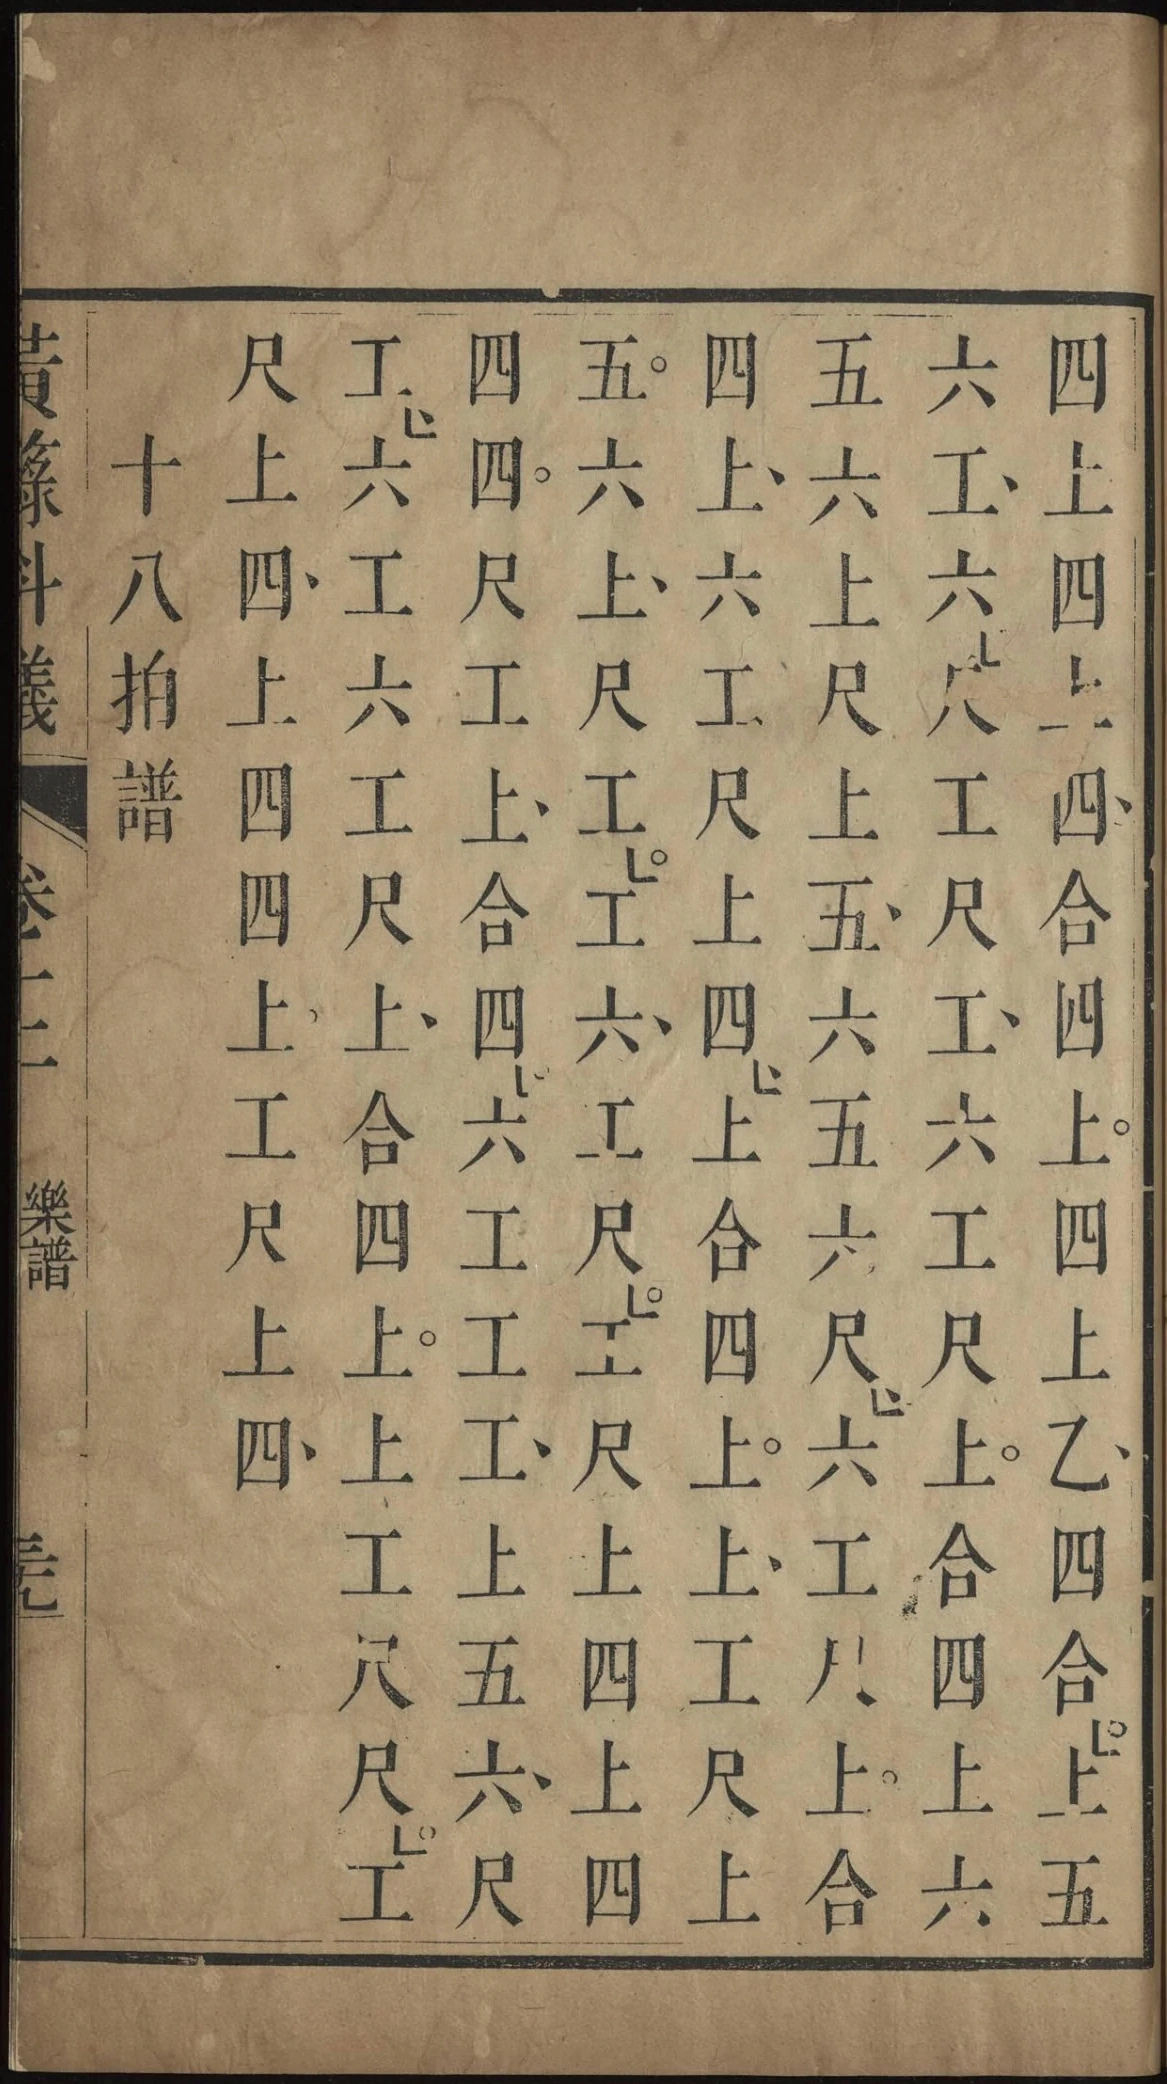 四上四上四、合四上。四上乙、四合上。五
六工、六尺工尺工、六工尺上。合四上六
五六上尺上五、六五六尺、六工尺上。合
四上、六工尺上四、上合四上。上、工尺上
五。六上、尺工。工六、工尺。工尺上四上四
四四。尺工上、合四六工工工、上五六、尺
工、六工六工尺上、合四上。上工尺尺。工
尺上四、上四四上、工尺上四、
十八拍譜
黃籙科儀 卷十二 樂譜 三九